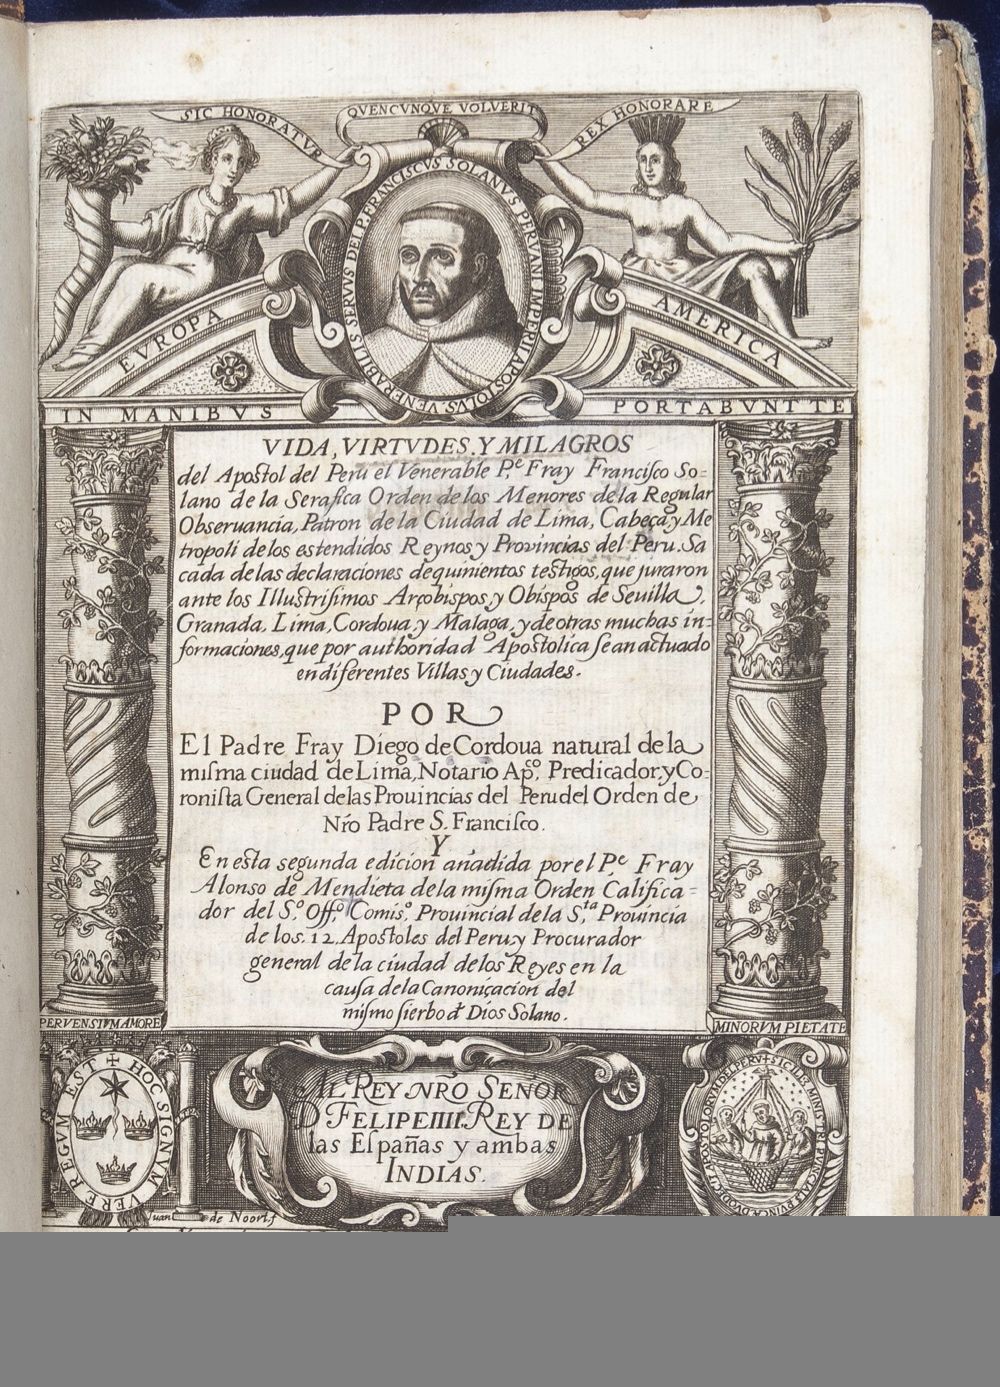 SIC HONORATVR
QVENCVNQVE VOLVERIT
REX HONORARE
VENERABILIS SERVVS DEI P. FRANCISCVS SOLANVS PERVANI IMPERII APOSTOLVS
EVROPA
AMERICA
IN MANIBVS
PORTABVNT TE
VIDA, VIRTVDES. Y MILAGROS
del Apostol del Peru el Venerable P.e Fray Francisco So=
lano de la Serafica Orden de los Menores de la Regular
Obseruancia, Patron de la Ciudad de Lima, Cabeça y Me
tropoli de los estendidos Reynos y Prouincias del Peru. Sa
cada de las declaraciones de quinientos testigos, que juraron
ante los Illustrisimos Arçobispos, y Obispos de Seuilla,
Granada, Lima, Cordoua, y Malaga, y de otras muchas in=
formaciones, que por authoridad Apostolica se an actuado
en diferentes Villas y Ciudades.
POR
El Padre Fray Diego de Cordoua natural de la
misma ciudad de Lima, Notario Ap.co, Predicador, y Co=
ronista General de las Prouincias del Peru del Orden de
Nro Padre S. Francisco.
Y
En esta segunda edicion añadida por el P.e Fray
Alonso de Mendieta de la misma Orden Califica=
dor del S.o Off.o Comis.o Prouincial de la S.ta Prouincia
de los. 12. Apostoles del Peru, y Procurador
general de la ciudad de los Reyes en la
causa de la Canoniçacion del
mismo sierbo d Dios Solano.
PERVENSIVM AMORE
MINORVM PIETATE
HOC SIGNVM VERE REGVM EST
AL REY NRO SENOR
D FELIPE IIII. REY DE
las Españas y ambas
INDIAS.
Iuan de Noort f